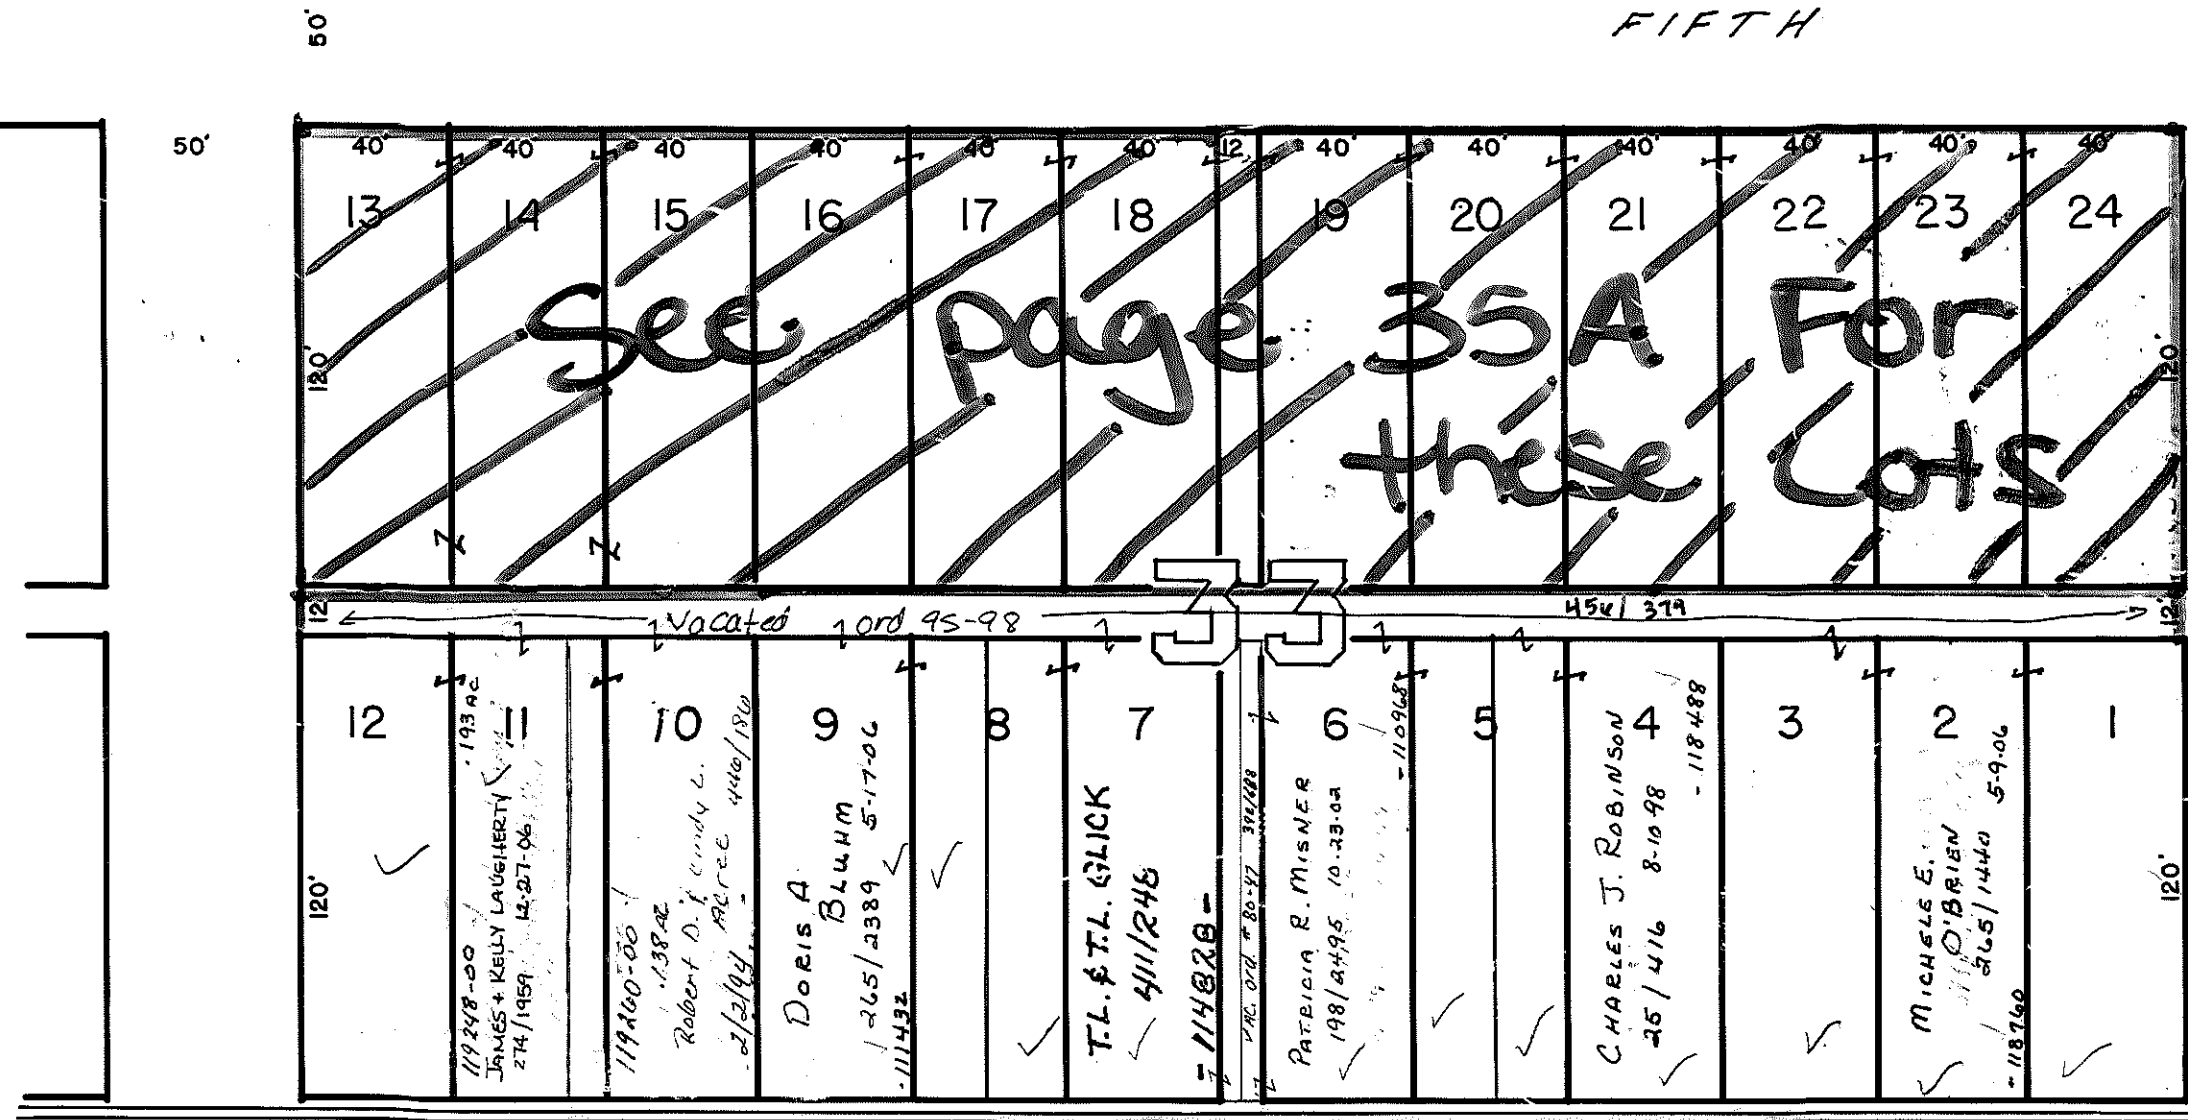 FIFTH
50'
50'
40' 40' 40' 40' 40' 40' 12' 40' 40' 40' 40' 40' 40'
13 14 15 16 17 18 19 20 21 22 23 24
See page 35A For
these Lots
120'
120'
12'
Vacated ord 95-98
33
456/379
12'
12 11 10 9 8 7 6 5 4 3 2 1
120'
.193 AC
119248-00
JAMES + KELLY LAUGHERTY
274/1959 12-27-06
119260-00
.138 AC
Robert D. & Cindy L.
Acree 446/186
2/2/94
DORIS A
BLUHM
265/2389 5-17-06
-111432
T.L. & T.L. GLICK
411/246
-114828-
VAC. Ord # 80-97 394/688
PATRICIA R. MISNER
198/2495 10-23-02
-110968
CHARLES J. ROBINSON
25/416 8-10-98
-118488
MICHELE E.
O'BRIEN
265/1440 5-9-06
-118760
120'